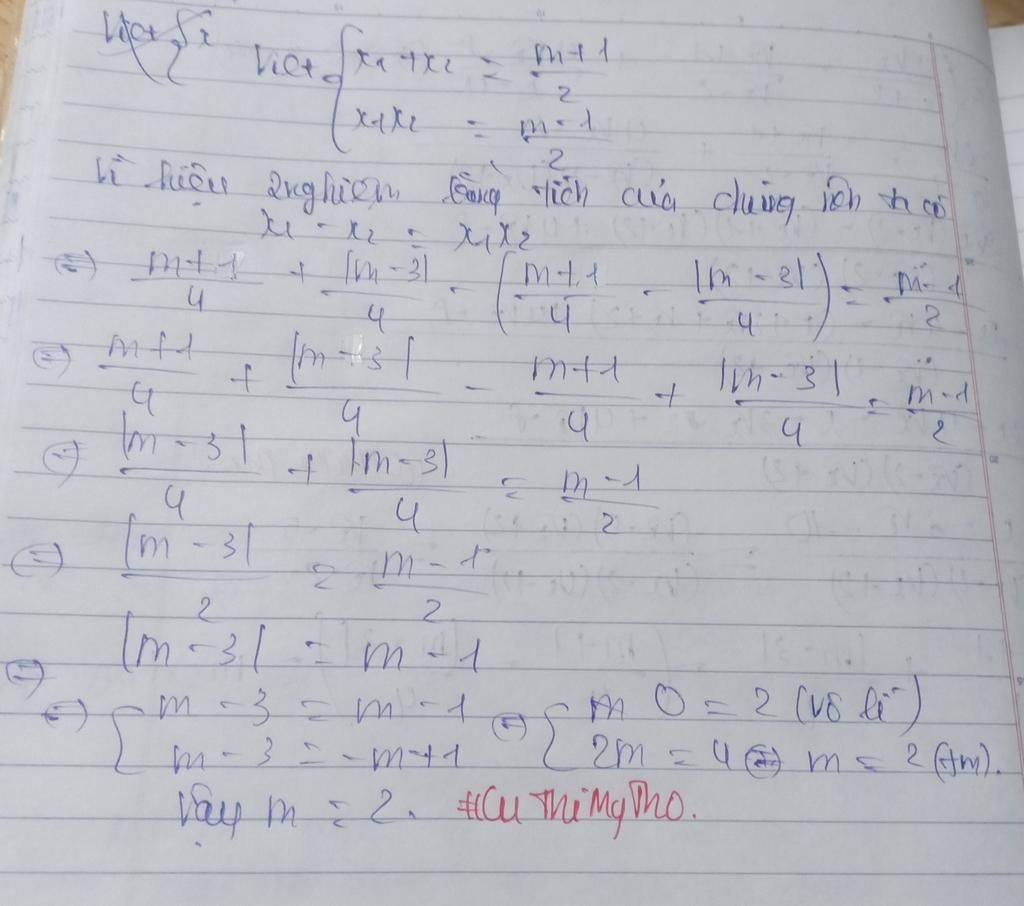 Viet { x
Viet { x₁ + x₂ = \frac{m+1}{2}
x₁x₂ = \frac{m-1}{2}
Vì hiệu 2 nghiệm bằng tích của chúng nên ta có
x₁ - x₂ = x₁x₂
⇔ \frac{m+1}{4} + \frac{|m-3|}{4} - (\frac{m+1}{4} - \frac{|m-3|}{4}) = \frac{m-1}{2}
⇔ \frac{m+1}{4} + \frac{|m-3|}{4} - \frac{m+1}{4} + \frac{|m-3|}{4} = \frac{m-1}{2}
⇔ \frac{|m-3|}{4} + \frac{|m-3|}{4} = \frac{m-1}{2}
⇔ \frac{|m-3|}{2} = \frac{m-1}{2}
⇔ |m-3| = m-1
⇔ { m-3 = m-1 ⇔ { m 0 = 2 (vô lí)
m-3 = -m+1 2m = 4 ⇔ m = 2 (tm).
Vậy m = 2. #CuThiMyTho.